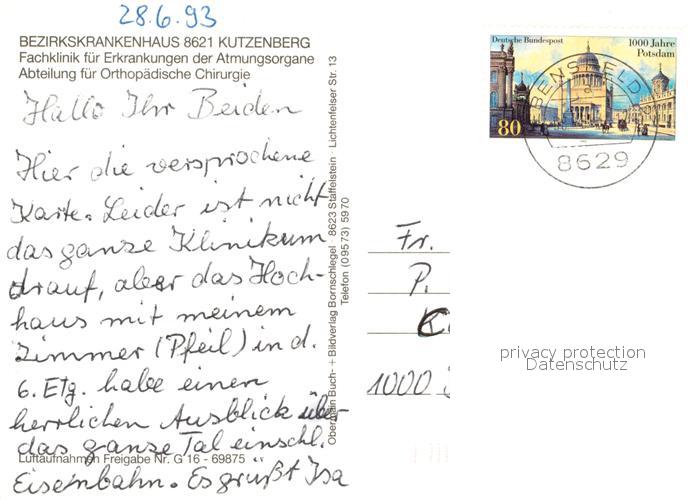 28.6.93
BEZIRKSKRANKENHAUS 8621 KUTZENBERG
Fachklinik für Erkrankungen der Atmungsorgane
Abteilung für Orthopädische Chirurgie
Hallo Ihr Beiden
Hier die versprochene
Karte. Leider ist nicht
das ganze Klinikum
drauf, aber das Hoch-
haus mit meinem
Zimmer (Pfeil) in d.
6. Etg. habe einen
herrlichen Ausblick über
das ganze Tal einschl.
Luftaufnahmen Freigabe Nr. G 16 - 69875
Eisenbahn. Es grüßt Isa
Obermain Buch- + Bildverlag Bornschlegel · 8623 Staffelstein · Lichtenfelser Str. 13
Telefon (09573) 5970
Deutsche Bundespost
1000 Jahre
Potsdam
80
EBENSFELD
8629
Fr.
P.
1000
privacy protection
Datenschutz